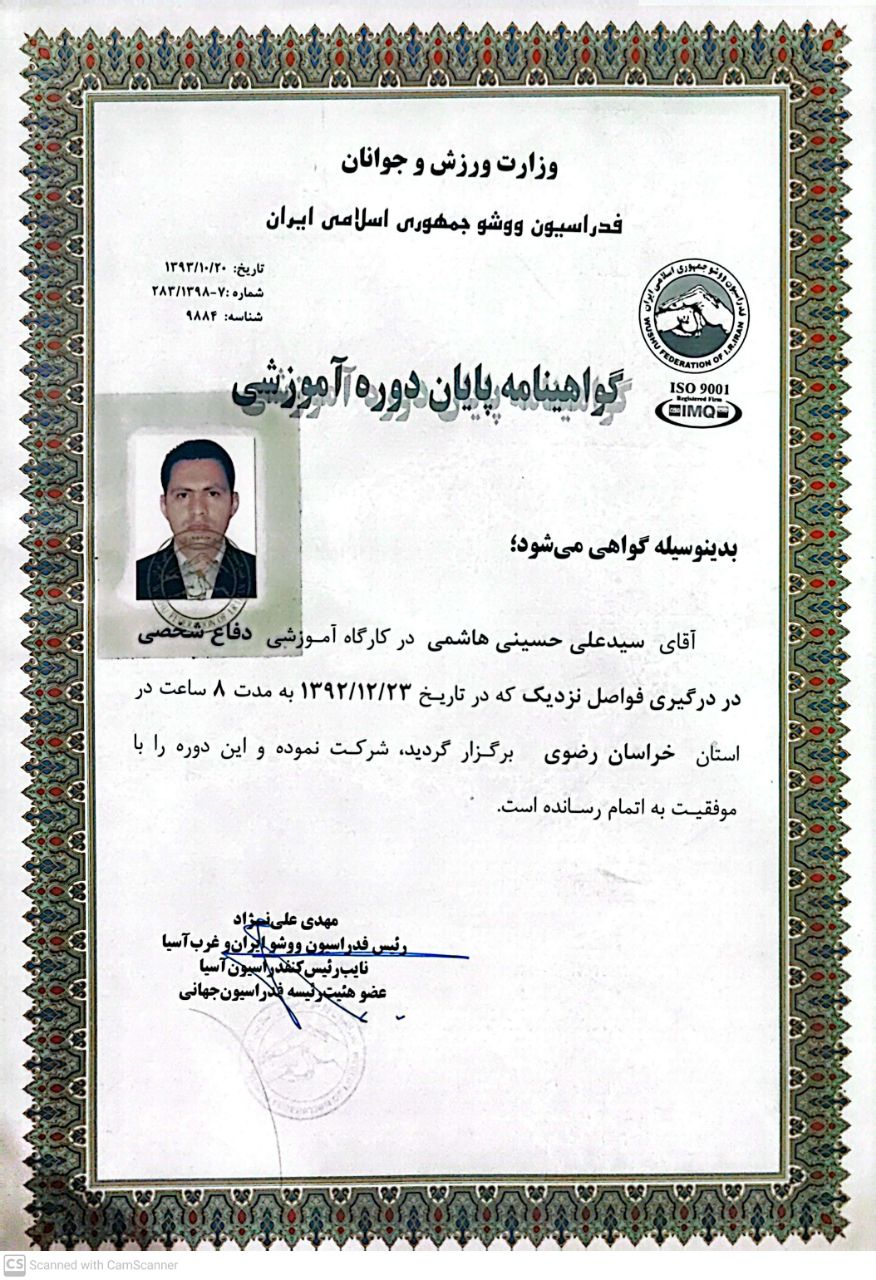 وزارت ورزش و جوانان
فدراسیون ووشو جمهوری اسلامی ایران
تاریخ: ۱۳۹۳/۱۰/۲۰
شماره: ۷-۲۸۳/۱۳۹۸
شناسه: ۹۸۸۴
فدراسیون ووشو جمهوری اسلامی ایران
WUSHU FEDERATION OF I.R.IRAN
ISO 9001
Registered Firm
IMQ
گواهینامه پایان دوره آموزشی
بدینوسیله گواهی می‌شود؛
آقای سیدعلی حسینی هاشمی در کارگاه آموزشی دفاع شخصی
در درگیری فواصل نزدیک که در تاریخ ۱۳۹۲/۱۲/۲۳ به مدت ۸ ساعت در
استان خراسان رضوی برگزار گردید، شرکت نموده و این دوره را با
موفقیت به اتمام رسانده است.
مهدی علی‌نژاد
رئیس فدراسیون ووشو ایران و غرب آسیا
نایب رئیس کنفدراسیون آسیا
عضو هئیت رئیسه فدراسیون جهانی
CS Scanned with CamScanner